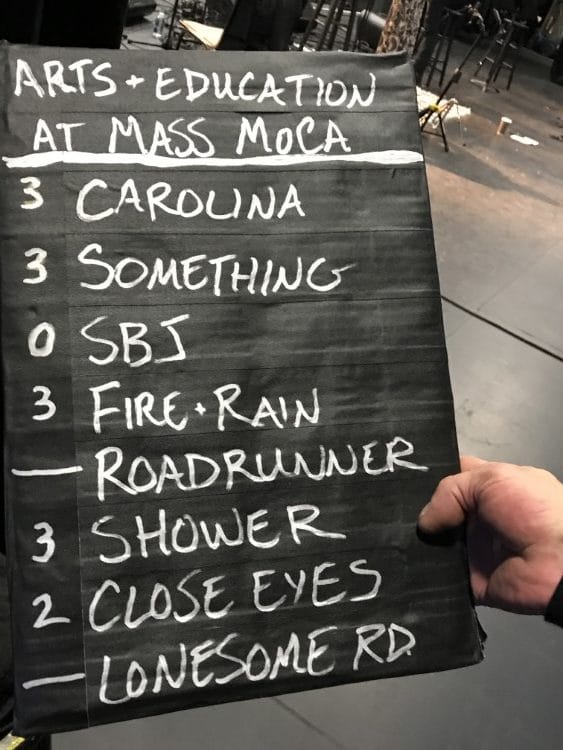 ARTS + EDUCATION
AT MASS MoCA
3 CAROLINA
3 SOMETHING
0 SBJ
3 FIRE + RAIN
— ROADRUNNER
3 SHOWER
2 CLOSE EYES
— LONESOME RD.